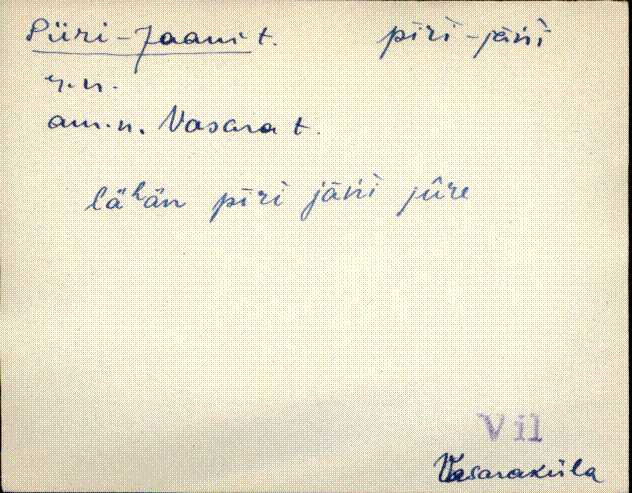 Piiri-Jaani t. pīri-jāńi
r.n.
am.n. Vasara t.
lähän pīri jāńi jūre
Vil
Vasaraküla